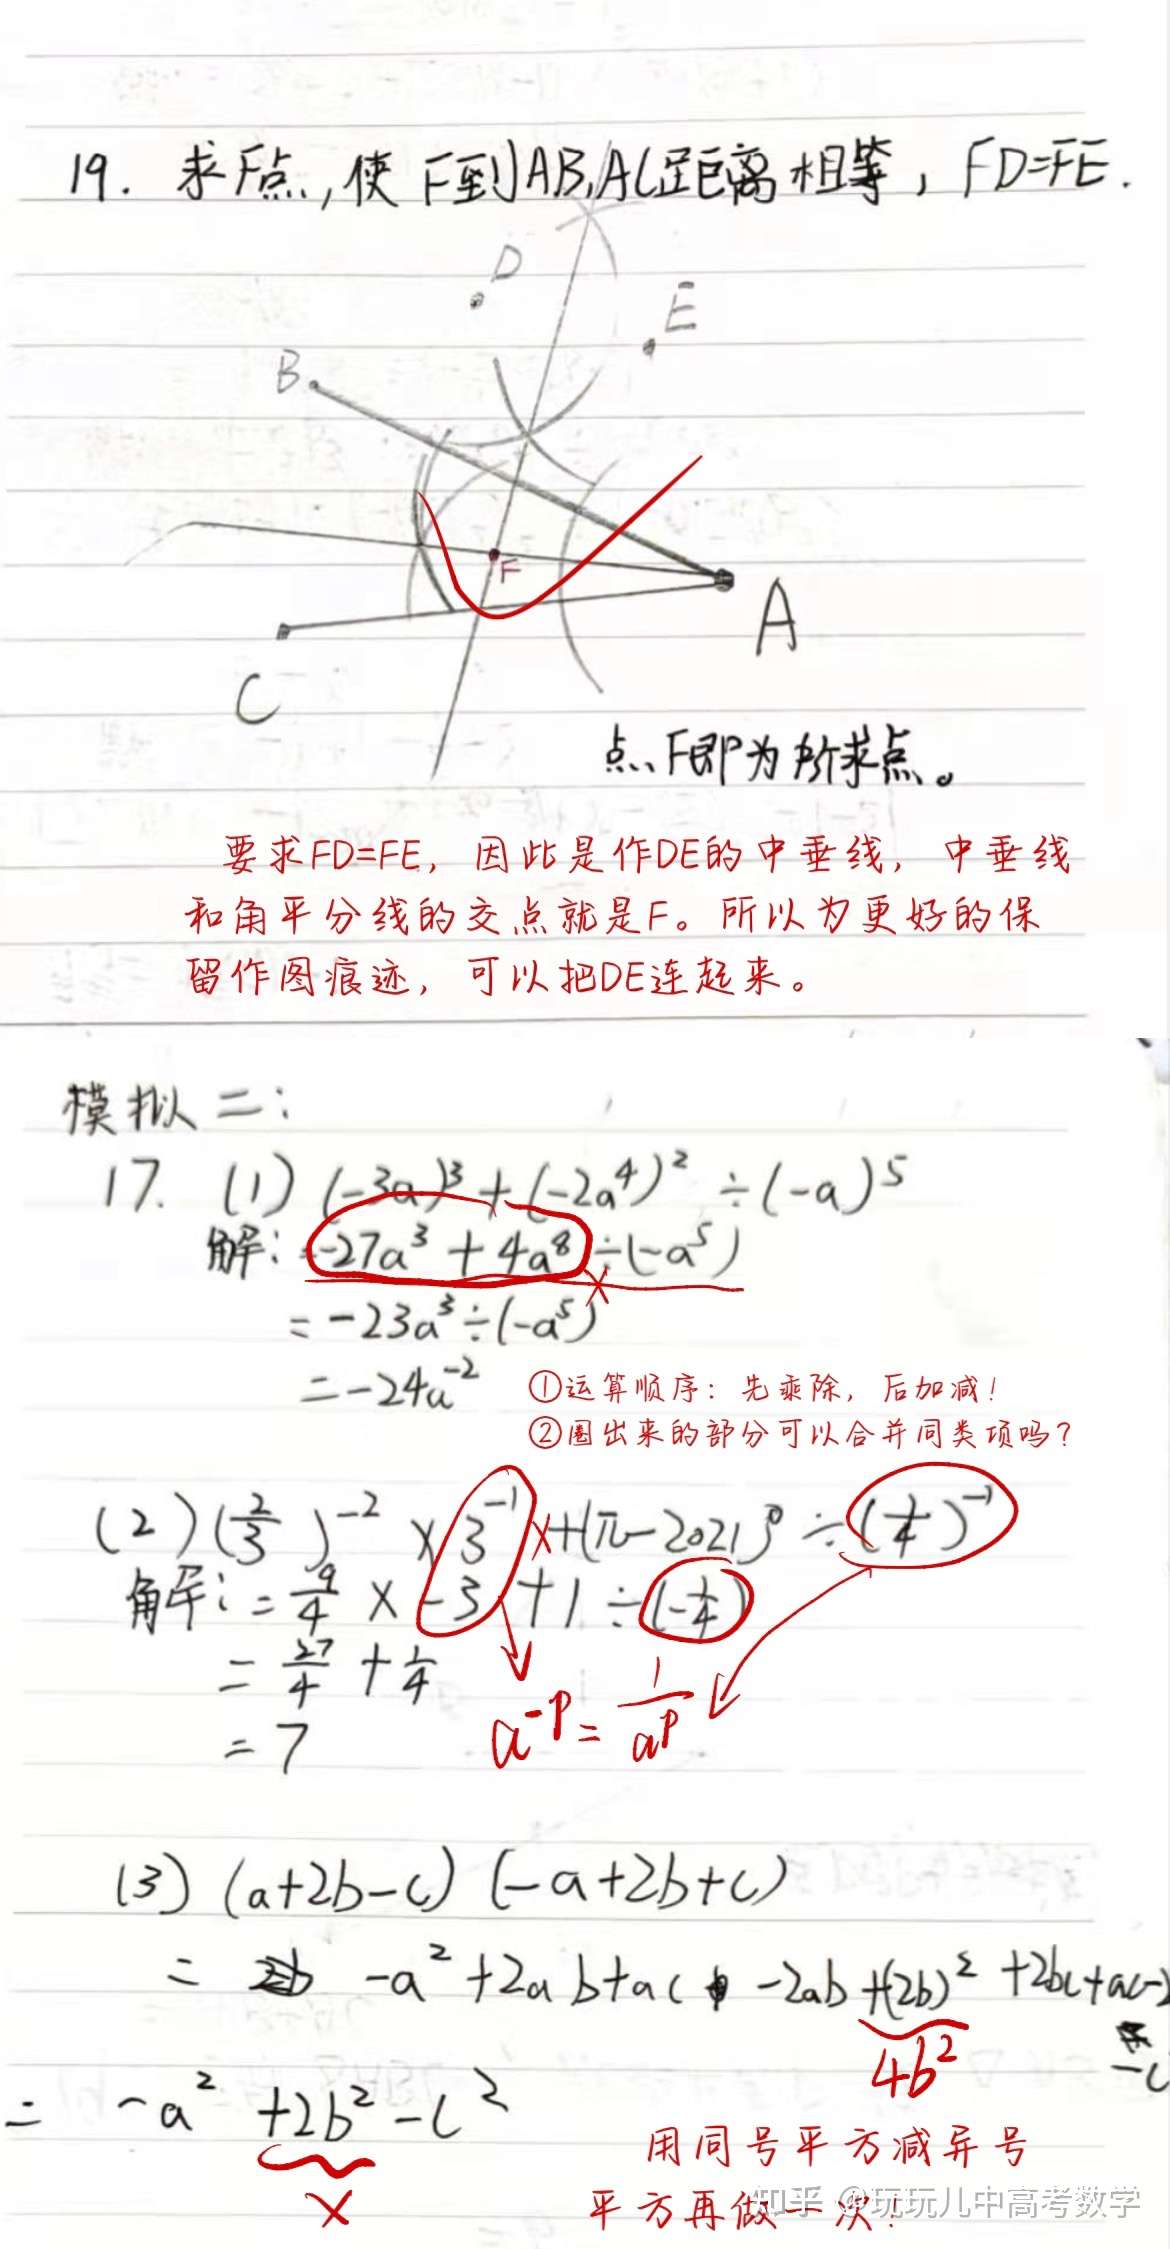 19. 求F点,使F到AB,AC距离相等, FD=FE.
D
E
B
F
A
C
点F即为所求点。
要求FD=FE, 因此是作DE的中垂线, 中垂线
和角平分线的交点就是F。所以为更好的保
留作图痕迹, 可以把DE连起来。
模拟二:
17. (1) (-3a)³+(-2a⁴)²÷(-a)⁵
解: =-27a³+4a⁸÷(-a⁵)
=-23a³÷(-a⁵)
=-24a⁻²
①运算顺序: 先乘除, 后加减!
②圈出来的部分可以合并同类项吗?
(2) (2/3)⁻²×3⁻¹+(π-2021)⁰÷(1/4)⁻¹
解: =9/4×-3+1÷(-1/4)
=27/4+1/4
=7
a⁻ᵖ=1/aᵖ
(3) (a+2b-c)(-a+2b+c)
= -a²+2ab+ac-2ab+(2b)²+2bc+ac-2
-c
4b²
= -a²+2b²-c²
×
用同号平方减异号
平方再做一次!
知乎 @玩玩儿中高考数学